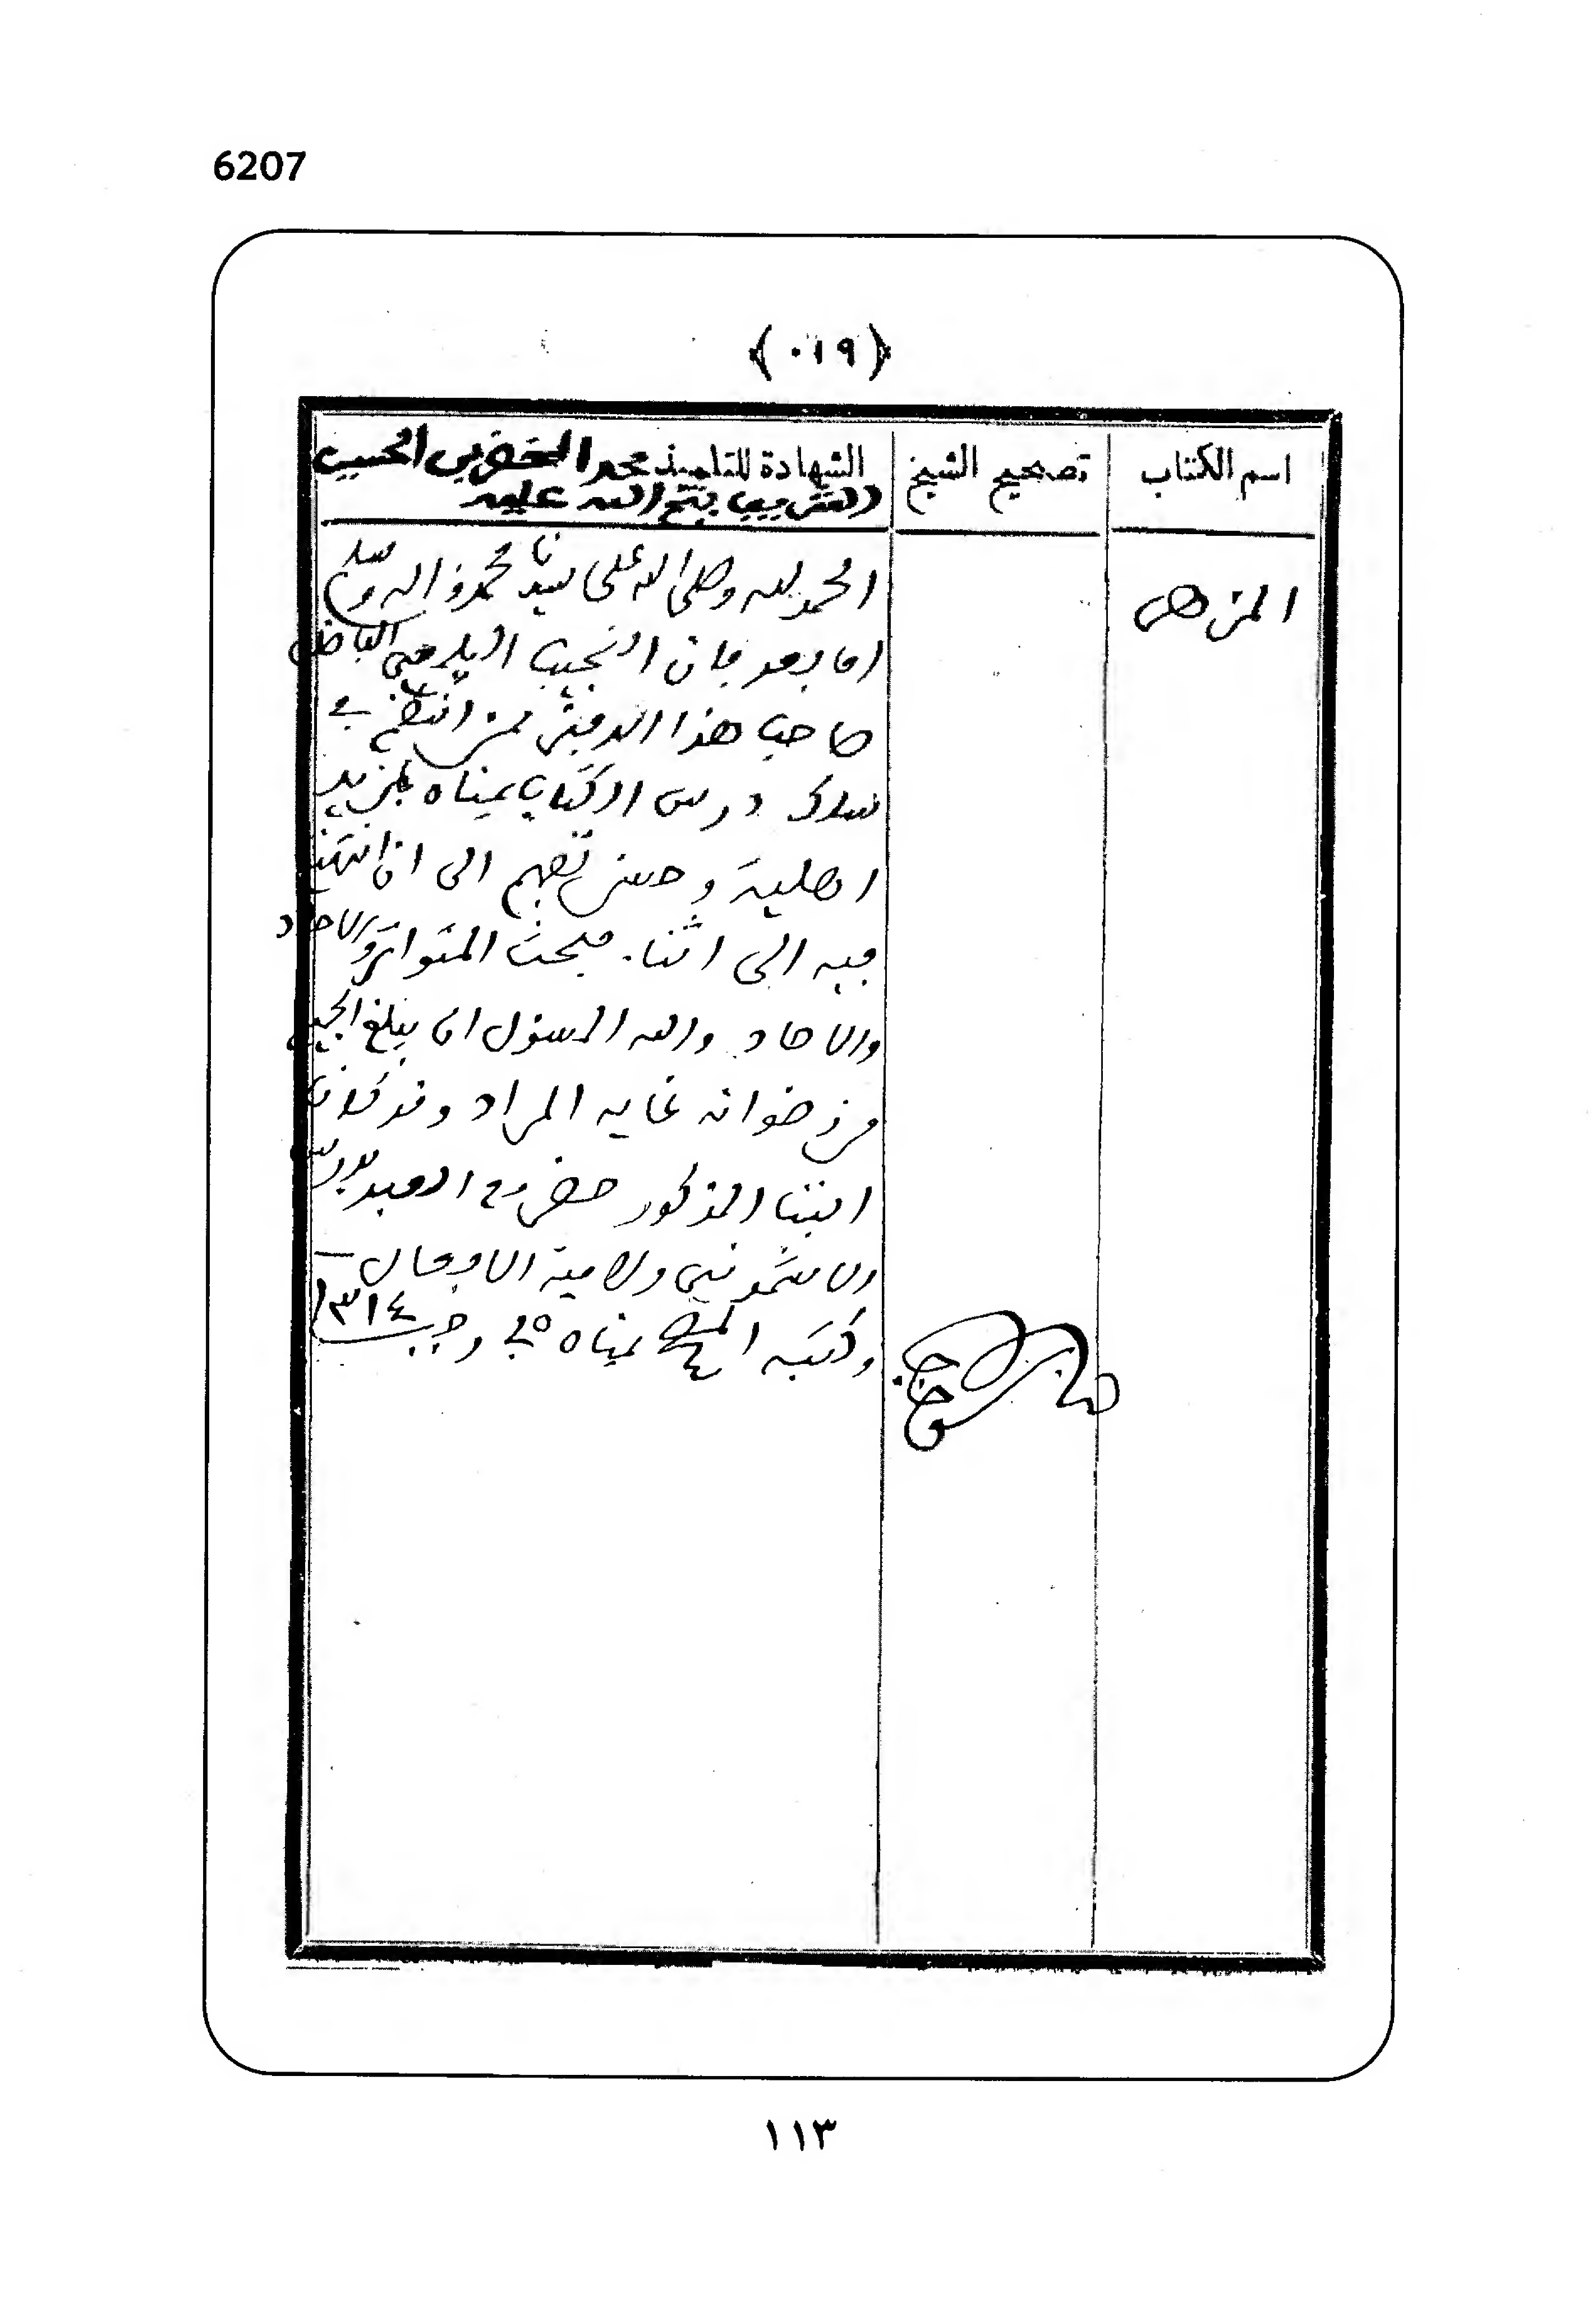 6207
﴿٠١٩﴾
اسم الكتاب
تصحيح الشيخ
الشهادة للتلميذ محمد الخضر بن الحسين
الشريف فتح الله عليه
المزهر
الحمد لله وصلى الله على سيدنا محمد وآله وسلم
اما بعد فان النجيب
صاحب هذا الدفتر ممن انتظم في
سلك درس الكتاب يمناه بمزيد
اهلية وحسن تفهم الى ان انتهينا
فيه الى اثناء مبحث المتواتر والاحاد
والاحاد والله المسئول ان يبلغ الجميع
من رضوانه غاية المراد وقد كان
ابننا المذكور حضر
والاشموني ولامية الافعال
وكتبه يمناه في رجب ١٣١٤
١١٣